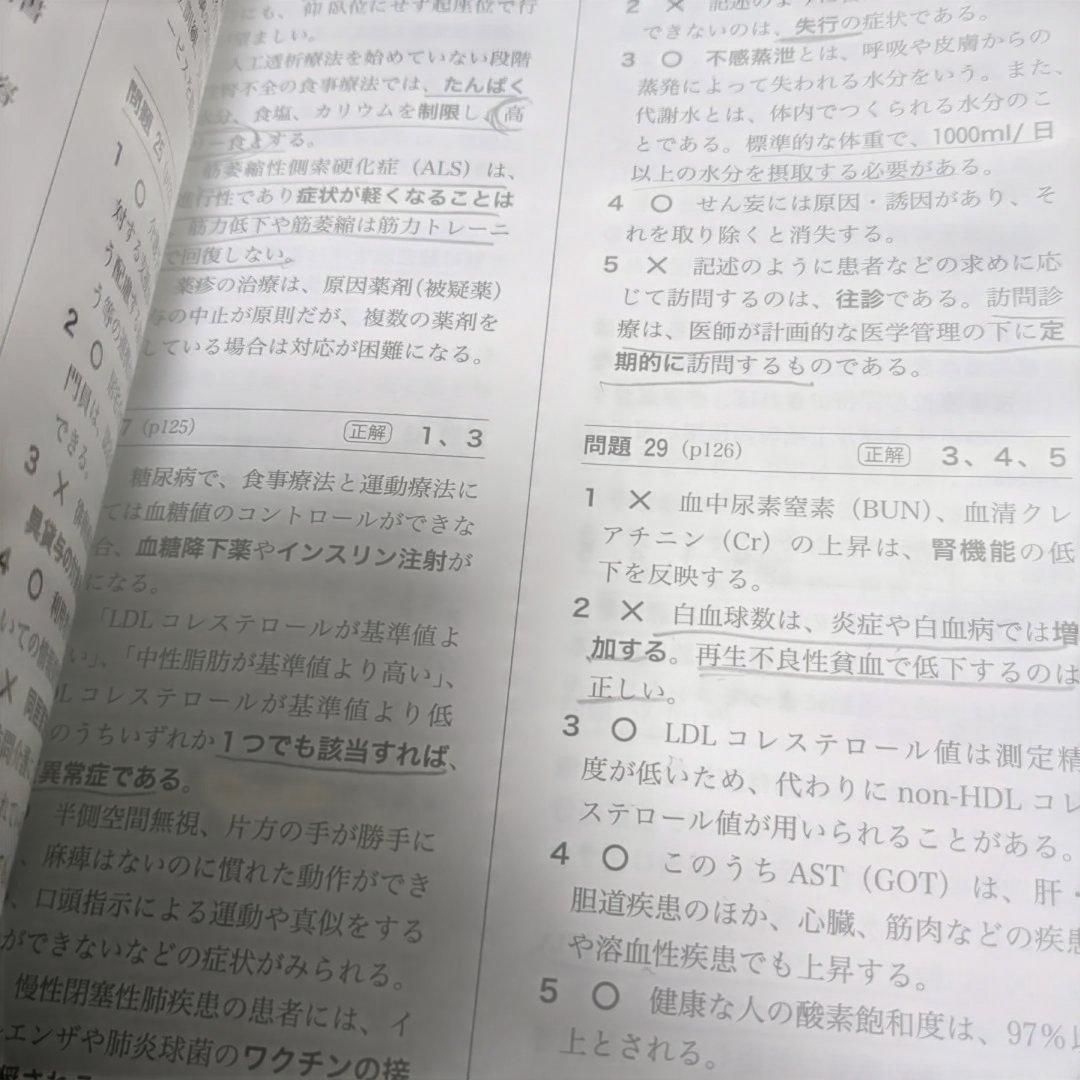 問題 25
1 ○
対する
う配慮
う等の
2 ○
門員は、
できる。
3 ×
具貸与の
4 ○ 利用
いての
×
にも、仰臥位にせず起座位で行
ましい。
人工透析療法を始めていない段階
腎不全の食事療法では、たんぱく
水分、食塩、カリウムを制限し、高
リー食とする。
筋萎縮性側索硬化症（ALS）は、
進行性であり症状が軽くなることは
筋力低下や筋萎縮は筋力トレーニ
で回復しない。
薬疹の治療は、原因薬剤（被疑薬）
与の中止が原則だが、複数の薬剤を
している場合は対応が困難になる。
7（p125） 正解 1、3
糖尿病で、食事療法と運動療法に
ては血糖値のコントロールができな
合、血糖降下薬やインスリン注射が
になる。
「LDLコレステロールが基準値よ
い」、「中性脂肪が基準値より高い」、
Lコレステロールが基準値より低
のうちいずれか1つでも該当すれば、
異常症である。
半側空間無視、片方の手が勝手に
、麻痺はないのに慣れた動作ができ
、口頭指示による運動や真似をする
ができないなどの症状がみられる。
慢性閉塞性肺疾患の患者には、イ
ルエンザや肺炎球菌のワクチンの接
2 × 記述のように
できないのは、失行の症状である。
3 ○ 不感蒸泄とは、呼吸や皮膚からの
蒸発によって失われる水分をいう。また、
代謝水とは、体内でつくられる水分のこ
とである。標準的な体重で、1000ml/日
以上の水分を摂取する必要がある。
4 ○ せん妄には原因・誘因があり、そ
れを取り除くと消失する。
5 × 記述のように患者などの求めに応
じて訪問するのは、往診である。訪問診
療は、医師が計画的な医学管理の下に定
期的に訪問するものである。
問題 29（p126） 正解 3、4、5
1 × 血中尿素窒素（BUN）、血清クレ
アチニン（Cr）の上昇は、腎機能の低
下を反映する。
2 × 白血球数は、炎症や白血病では増
加する。再生不良性貧血で低下するのは
正しい。
3 ○ LDLコレステロール値は測定精
度が低いため、代わりに non-HDL コレ
ステロール値が用いられることがある。
4 ○ このうち AST（GOT）は、肝・
胆道疾患のほか、心臓、筋肉などの疾患
や溶血性疾患でも上昇する。
5 ○ 健康な人の酸素飽和度は、97％以
上とされる。